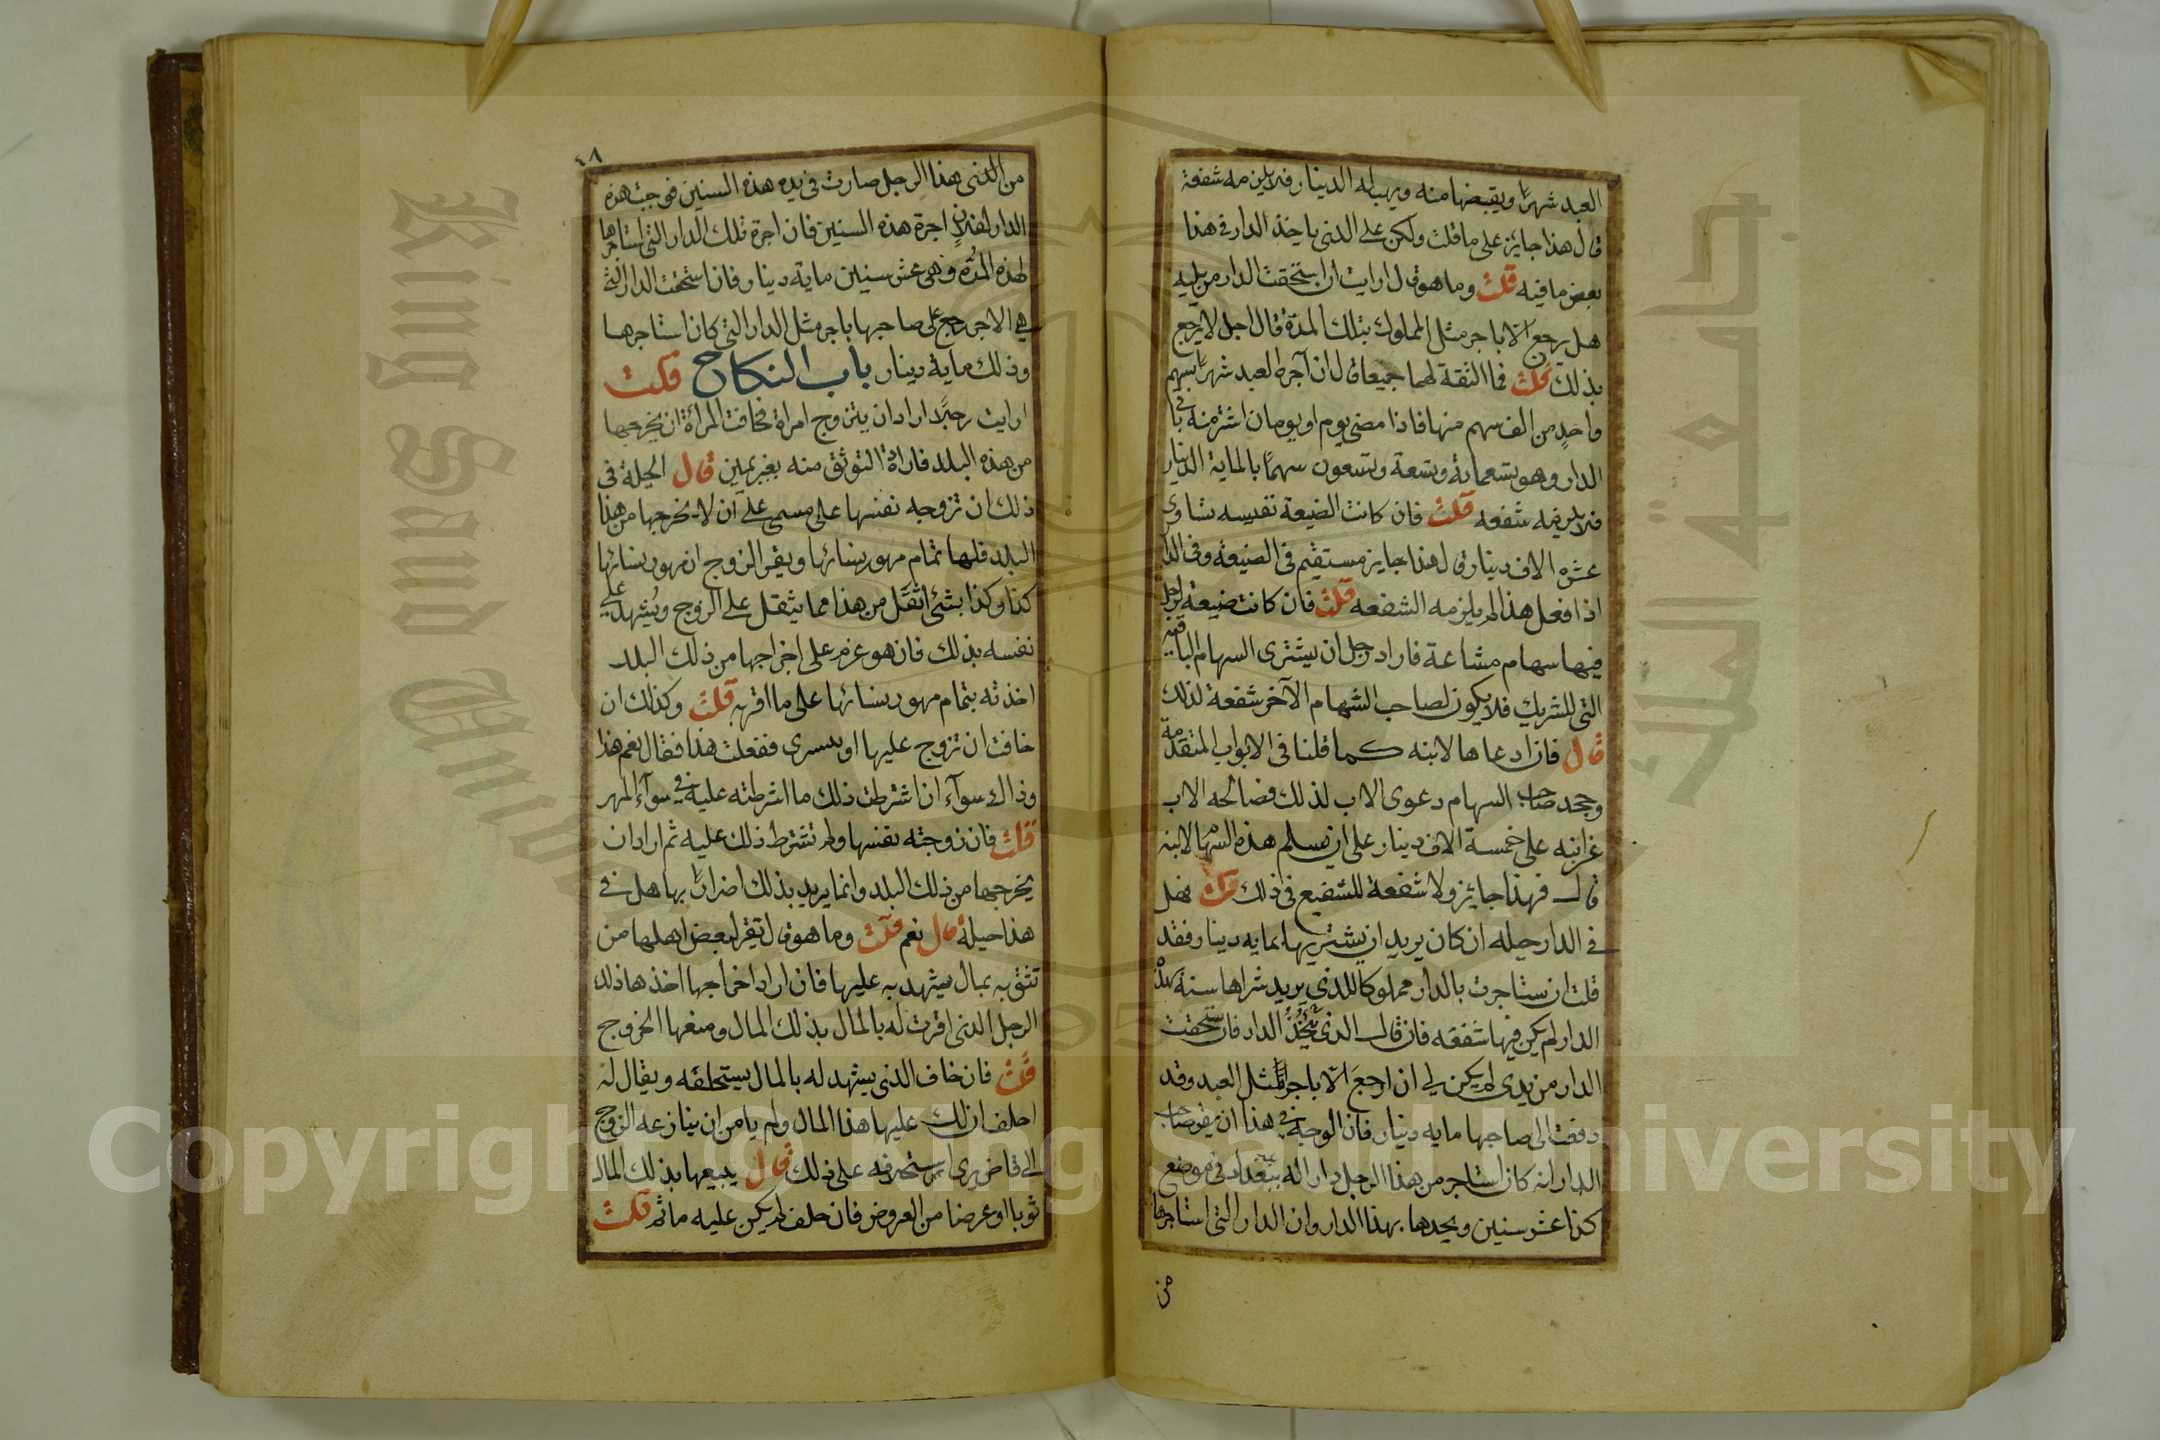 العبد شهرًا ويقبضها منه ويهب له الدينار فلا يلزمه شفعة
قال هذا جايز على ما قلت ولكن على الذى ياخذ الدار فى هذا
بعض ما فيه قلت وما هو قال ارايت ان استحقت الدار من يديه
هل يرجع الا باجر مثل المملوك بتلك المدة قال اجل لا يرجع
بذلك قلت فما الثقة لهما جميعا قال ان آجره العبد شهرًا بسهم
واحدٍ من الف سهم منها فاذا مضى يوم او يومان اشتر منه باقى
الدار وهو تسعماية وتسعة وتسعون سهمًا بالماية الدينار
فلا يلزمه شفعه قلت فان كانت الضيعة نفيسه تساوى
عشرة الاف دينار قال هذا جايز مستقيم فى الضيعة وفى الدار
اذا فعل هذا لم يلزمه الشفعه قلت فان كانت ضيعة لرجل
فيها سهام مشاعة فاراد رجل ان يشترى السهام الباقية
التى للشريك فلا يكون لصاحب السهام الآخر شفعة لذلك
قال فان ادعاها لابنه كما قلنا فى الابواب المتقدمة
وجحد صاحب السهام دعوى الاب لذلك فصالحه الاب
عن ابنه على خمسة الاف دينار على ان يسلم هذه السهام لابنه
قال فهذا جايز ولا شفعة للشفيع فى ذلك قلت فهل
فى الدار حيله ان كان يريد ان يشتريها بمايه دينار فقد
قلت ان ستاجرت بالدار مملوكا للذى يريد شراها سنة بهذه
الدار لم يكن فيها شفعه فان قال الذى ياخذ الدار فان ستحقت
الدار من يدى لم يكن لى ان ارجع الا باجرة مثل العبد وقد
دفعت الى صاحبها مايه دينار فان الوجه فى هذا ان يقر صاحب
الدار انه كان استاجر من هذا الرجل دارا له ببغداد فى موضع
كذا عشر سنين ويحدها بهذا الدار وان الدار التى استاجرها
من
٤٨
من الذى هذا الرجل صارت فى يده هذه السنين فوجبت هذه
الدار لفلانٍ اجرة هذه السنين فان اجرة تلك الدار التى استاجرها
لهذه المدة وهى عشر سنين ماية دينار فان استحقت الدار التى
هى الاجر رجع على صاحبها باجر مثل الدار التى كان استاجرها
وذلك ماية دينار باب النكاح قلت
ارايت رجلًا اراد ان يتزوج امراة فخافت المرأة ان يخرجها
من هذه البلد فارادت التوثق منه بغير يمين قال الحيلة فى
ذلك ان تزوجه نفسها على مسمى على ان لا يخرجها من هذا
البلد فلها تمام مهور نسائها ويقر الزوج ان مهور نسائها
كذا وكذا بشئ اثقل من هذا مما يثقل على الزوج ويُشهد على
نفسه بذلك فان هو عزم على اخراجها من ذلك البلد
اخذته بتمام مهور نسائها على ما اقر به قلت وكذلك ان
خافت ان تزوج عليها او يتسرى ففعلت هذا فقال نعم هذا
وذاك سوآء ان اشترطت ذلك ما اشرطته عليه فى سوآء المهر
قلت فان زوجته نفسها ولم تشترط ذلك عليه ثم اراد ان
يخرجها من ذلك البلد وانما يريد بذلك اضرارًا بها هل فى
هذا حيلة قال نعم قلت وما هو قال تقر لبعض اهلها من
تثق به بمال يشهد به عليها فان اراد اخراجها اخذها ذلك
الرجل الذى اقرت له بالمال بذلك المال ومنعها الخروج
قلت فان خاف الذى يشهد له بالمال يستحلفه ويقال له
احلف ان لك عليها هذا المال ولم يامن ان ينازعه الزوج
الى قاض يرى استحلافه على ذلك قال يبيعها بذلك المال
ثوبا او عرضا من العروض فان حلف لم يكن عليه ماثم قلت
King Saud University
جامعة الملك سعود
1957
Copyright © King Saud University